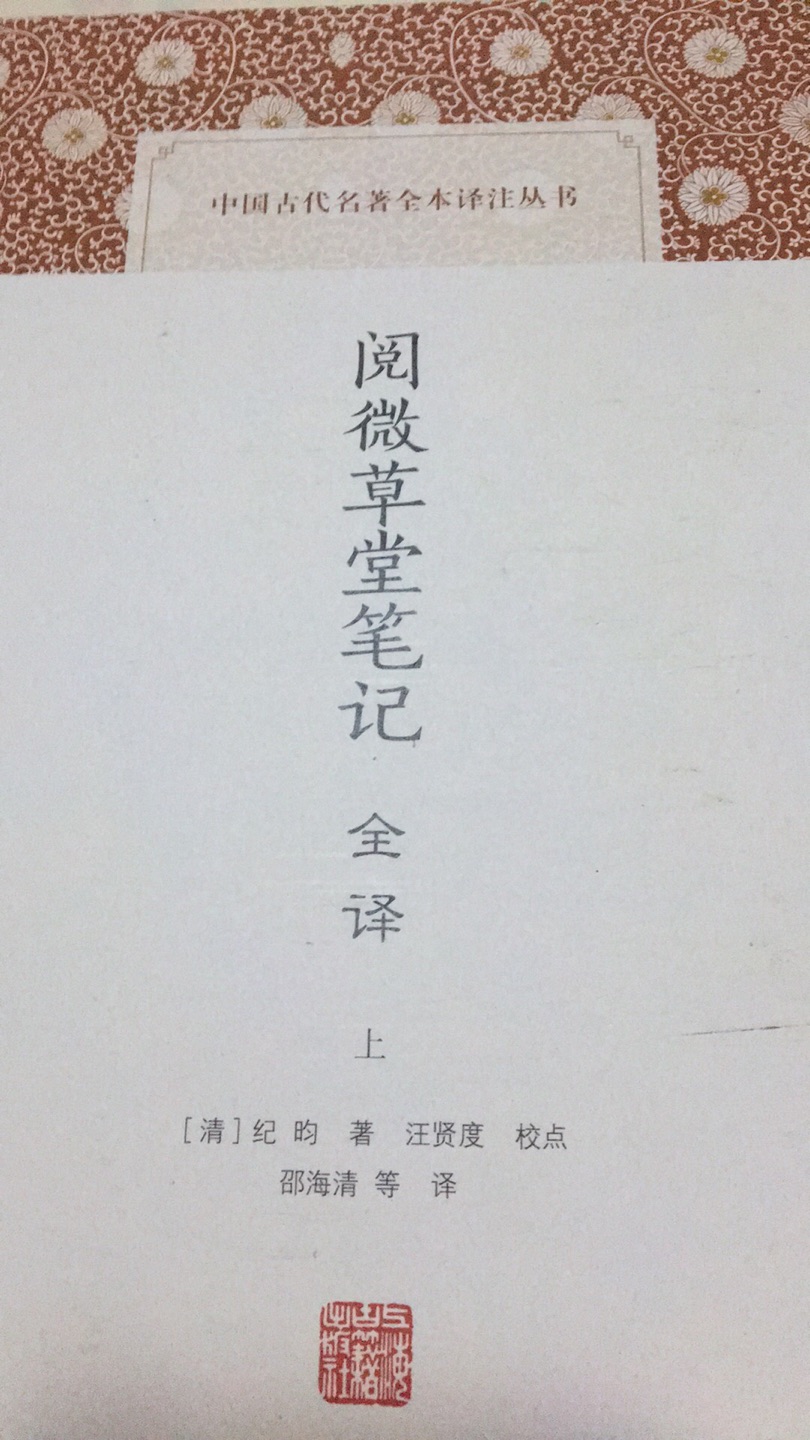 中国古代名著全本译注丛书
阅微草堂笔记
全译
上
[清]纪 昀 著 汪贤度 校点
邵海清 等 译
上海古籍出版社